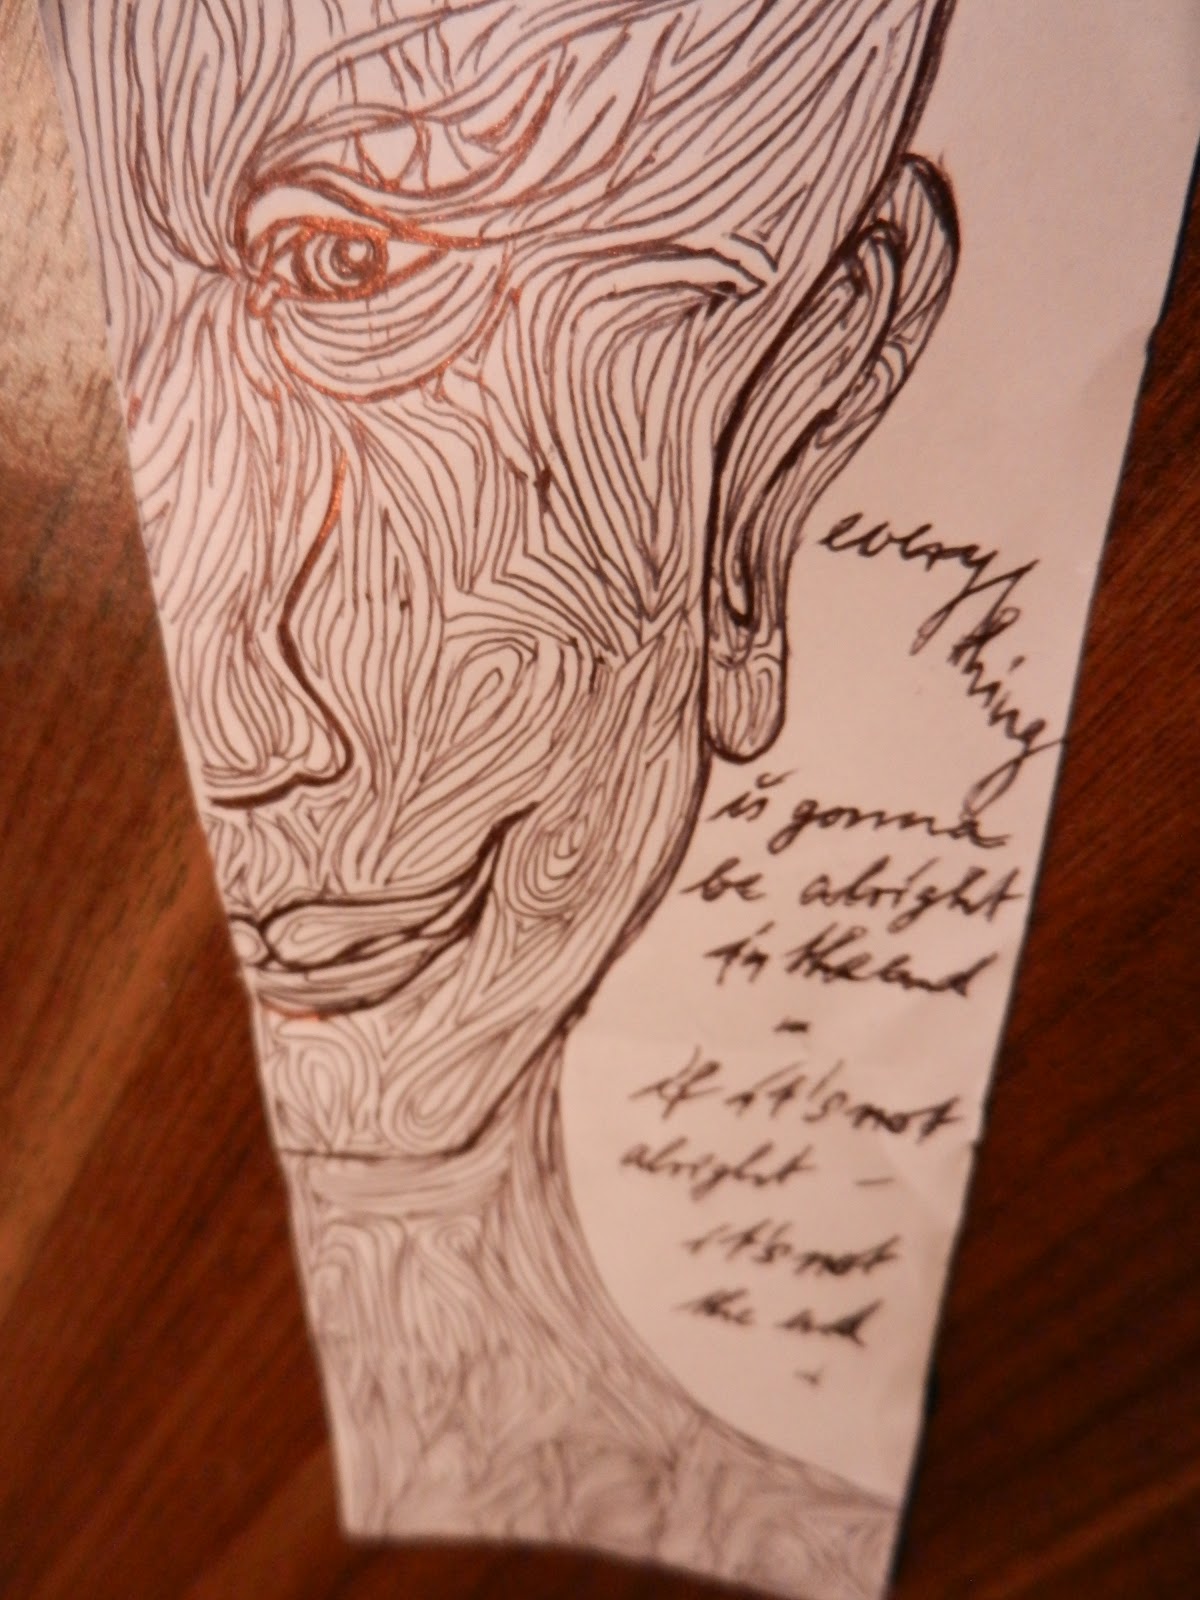 everything
is gonna
be alright
in the end
-
if it's not
alright -
it's not
the end
-